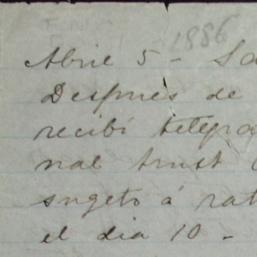 1886
Abril 5 - Sa
Después de
recibí telegra
nal trust
sugeto á rat
el dia 10 -